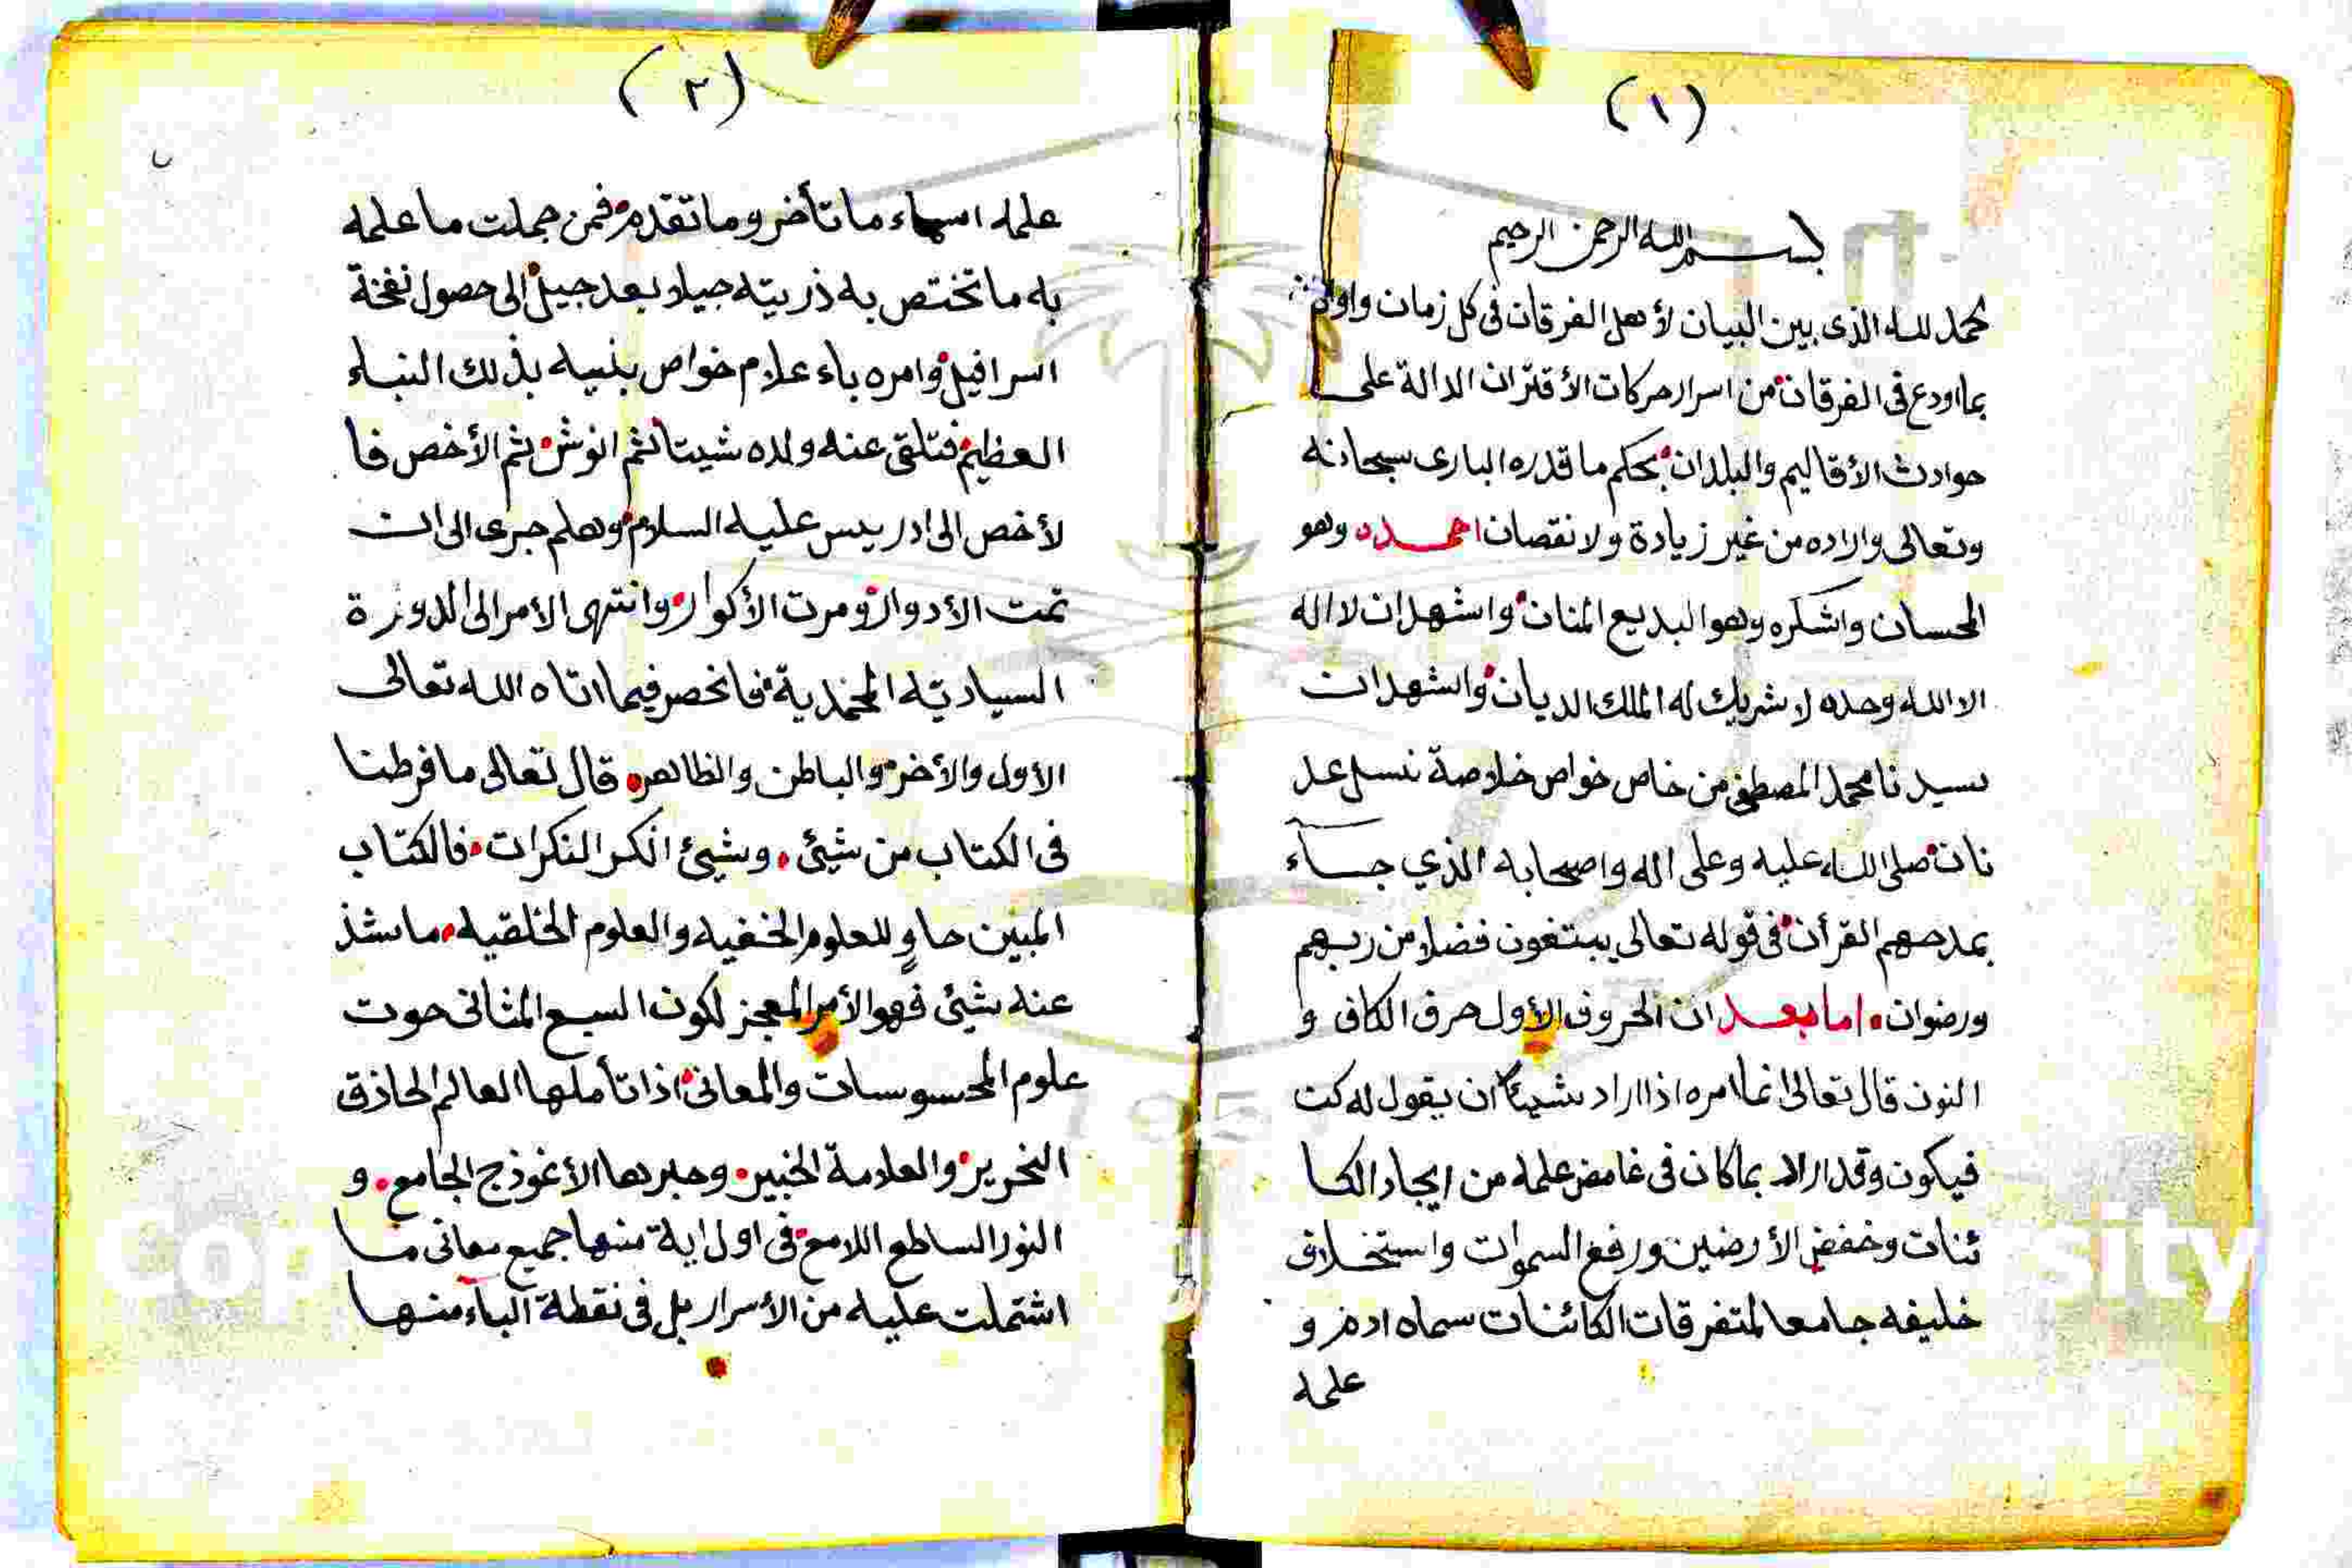 (١)
بسم الله الرحمن الرحيم
لحمد لله الذى بين البيان لأهل الفرقان فى كل زمان واوان
بما اودع فى الفرقان من اسرار حركات الأقتران الدالة على
حوادث الأقاليم والبلدان بحكم ما قدره البارى سبحانه
وتعالى واراده من غير زيادة ولا نقصان احمده وهو
المحسان واشكره وهو البديع المنان واشهد ان لا اله
الا الله وحده لا شريك له الملك الديان واشهد ان
سيدنا محمد المصطفى من خاص خواص خلاصة نسل عد
نان صلى الله عليه وعلى اله واصحابه الذي جاء
بمدحهم القرأن فى قوله تعالى يبتغون فضلا من ربهم
ورضوان اما بعد ان الحروف الأول حرف الكاف و
النون قال تعالى انما امره اذا اراد شيئا ان يقول له كن
فيكون وقد اراد بما كان فى غامض علمه من ايجاد الكا
ئنات وخفض الأرضين ورفع السموات واستخلاف
خليفه جامعا لمتفرقات الكائنات سماه ادم و
علمه
(٢)
علمه اسماء ما تأخر وما تقدم فمن جملت ما علمه
به ما تختص به ذريته جيلا بعد جيل الى حصول نفخة
اسرافيل وامره باء علام خواص بنيه بذلك النباء
العظيم فتلقى عنه ولده شيتا ثم انوش ثم الأخص فا
لأخص الى ادريس عليه السلام وهلم جرى الى ان
تمت الأدوار ومرت الأكوار وانتهى الأمر الى الدورة
السياديه المحمدية فانحصر فيما اتاه الله تعالى
الأول والأخر والباطن والظاهر قال تعالى ما فرطنا
فى الكتاب من شيئ وشيئ انكر النكرات فالكتاب
المبين حاوٍ للعلوم الخفيه والعلوم الخلقيه ما شذ
عنه شيئ فهو الأمر المعجز لكون السبع المثانى حوت
علوم المحسوسات والمعانى اذا تأملها العالم الحاذق
النحرير والعلامة الخبير وحبرها الأنموذج الجامع و
النور الساطع اللامع فى اول اية منها جميع معانى ما
اشتملت عليه من الأسرار بل فى نقطة الباء منها